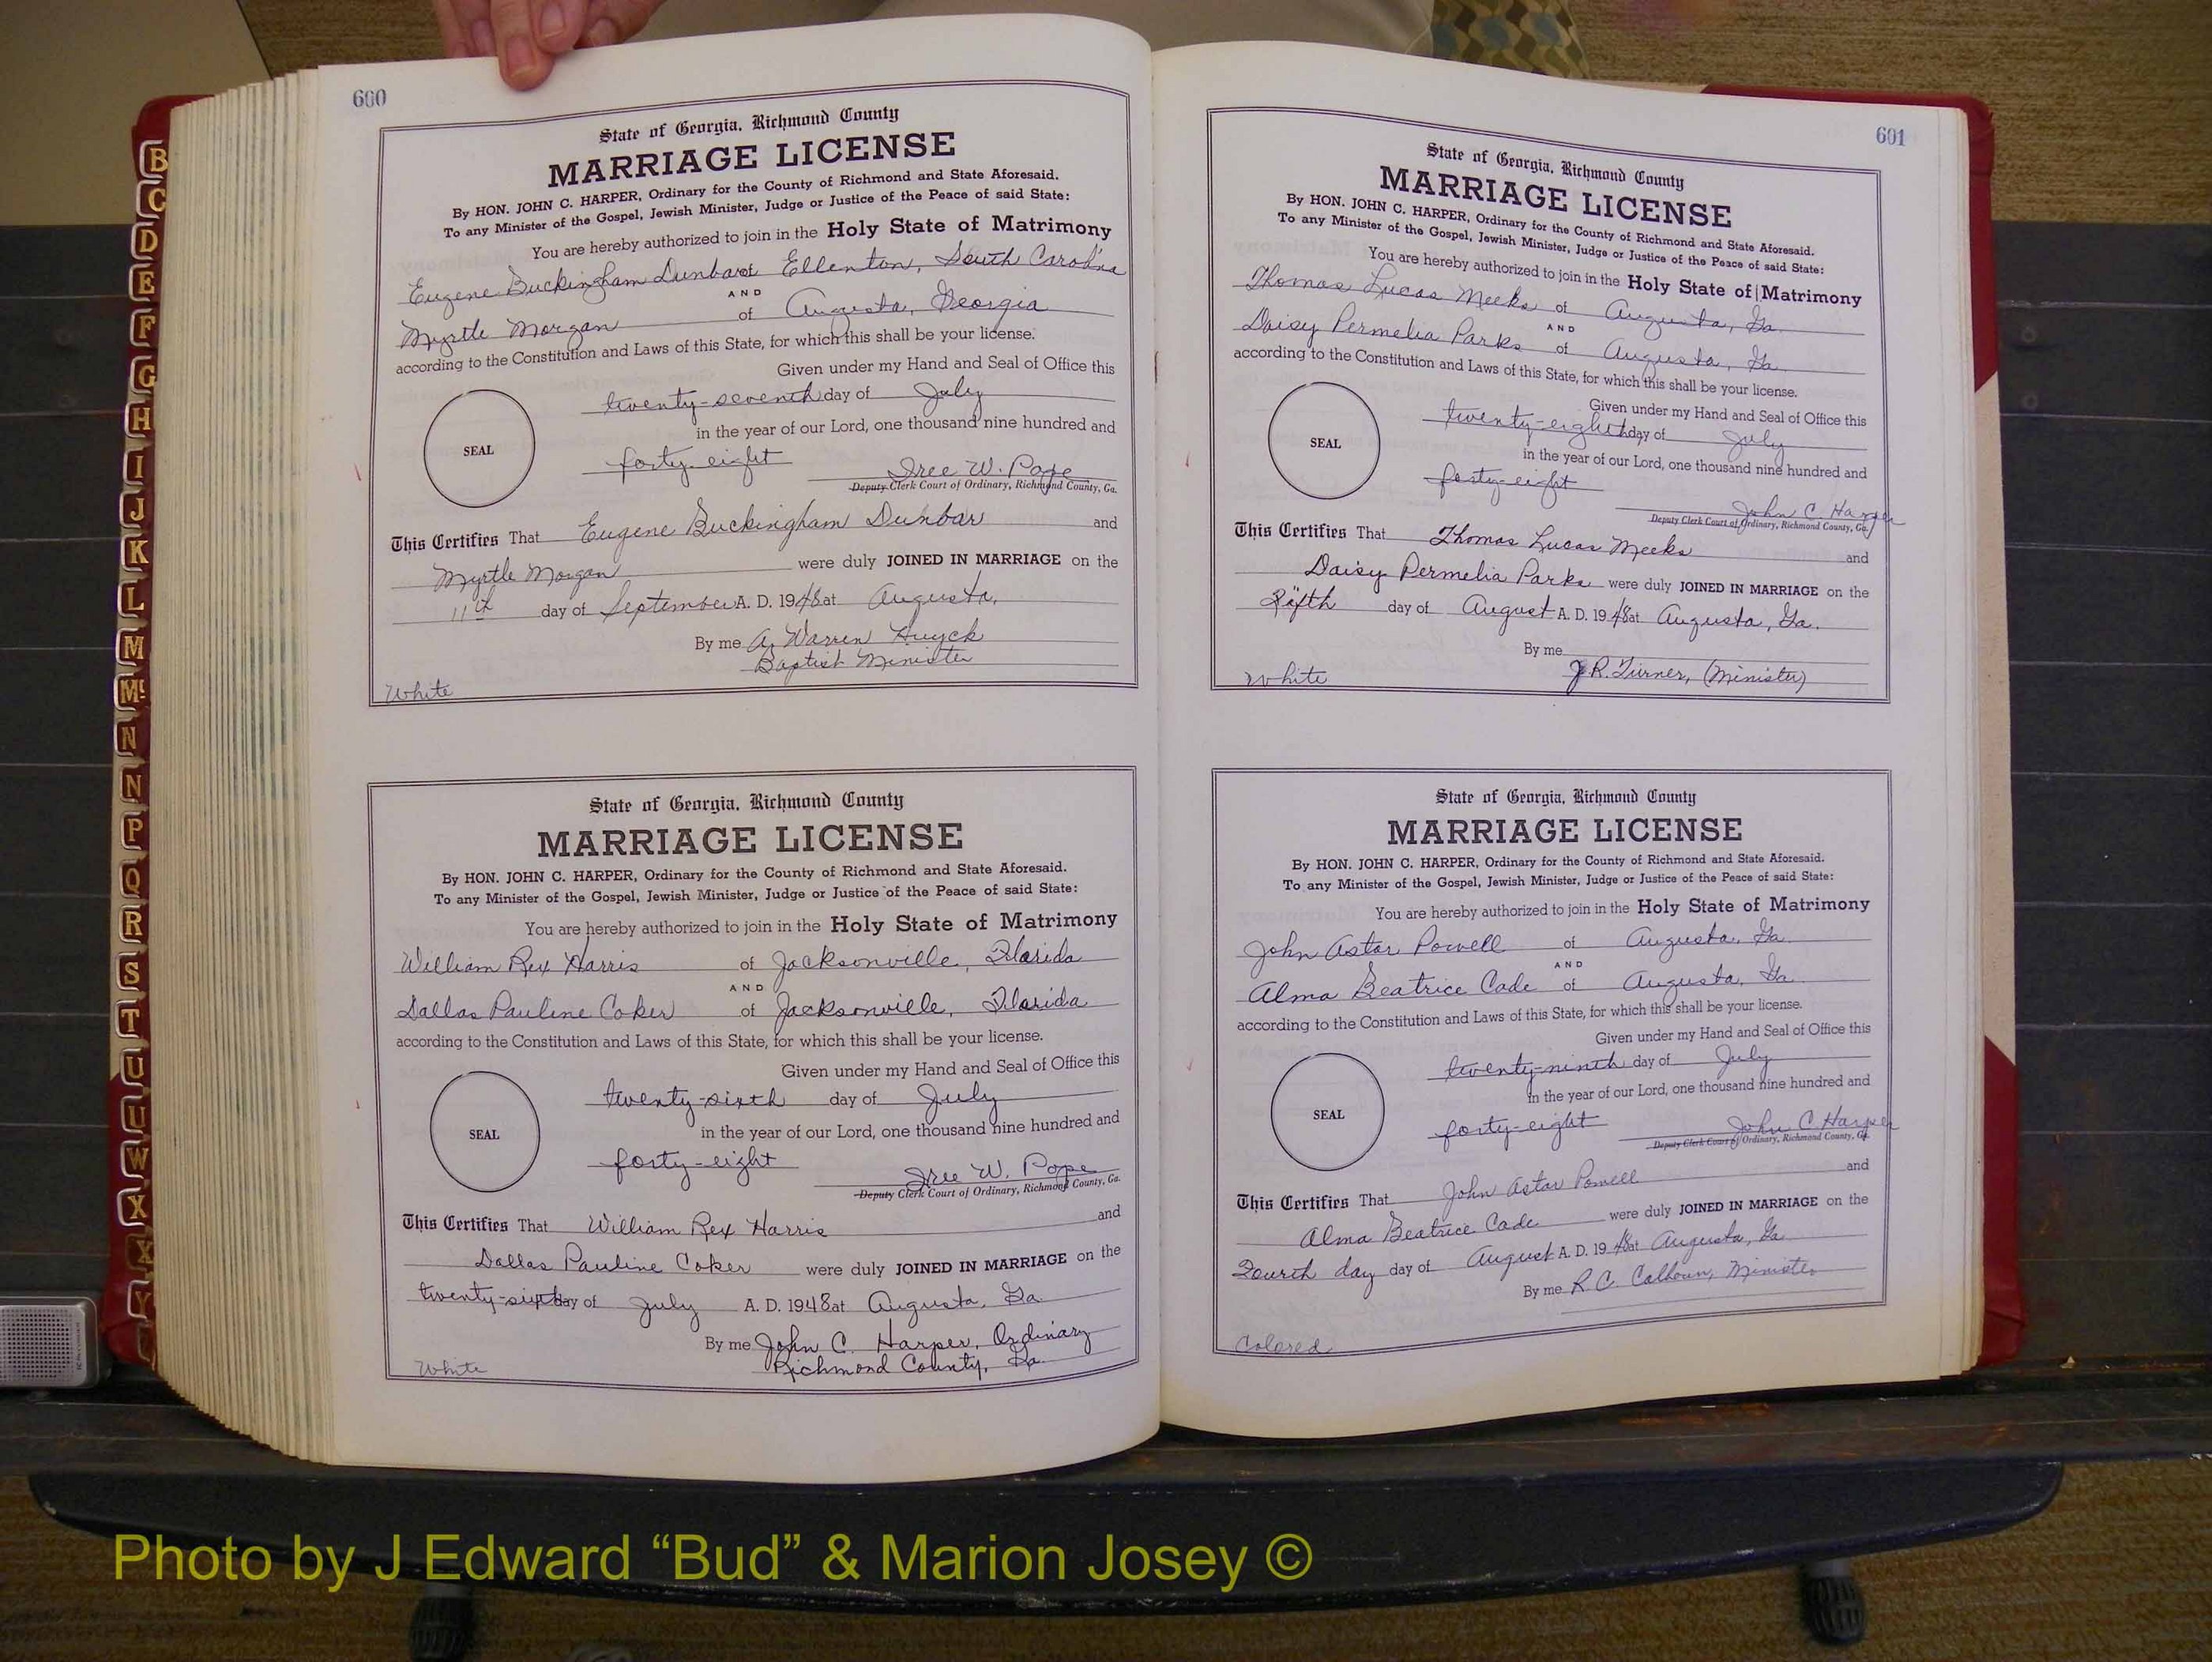 660
State of Georgia, Richmond County
MARRIAGE LICENSE
By HON. JOHN C. HARPER, Ordinary for the County of Richmond and State Aforesaid.
To any Minister of the Gospel, Jewish Minister, Judge or Justice of the Peace of said State:
You are hereby authorized to join in the Holy State of Matrimony
Eugene Buckingham Dunbar of Ellenton, South Carolina
AND
Myrtle Morgan of Augusta, Georgia
according to the Constitution and Laws of this State, for which this shall be your license.
Given under my Hand and Seal of Office this
twenty-seventh day of July
in the year of our Lord, one thousand nine hundred and
SEAL
forty-eight Iree W. Pope
Deputy Clerk Court of Ordinary, Richmond County, Ga.
This Certifies That Eugene Buckingham Dunbar and
Myrtle Morgan were duly JOINED IN MARRIAGE on the
11th day of September A. D. 1948 at Augusta,
By me A. Warren Huyck
Baptist Minister
White
State of Georgia, Richmond County
MARRIAGE LICENSE
By HON. JOHN C. HARPER, Ordinary for the County of Richmond and State Aforesaid.
To any Minister of the Gospel, Jewish Minister, Judge or Justice of the Peace of said State:
You are hereby authorized to join in the Holy State of Matrimony
William Rex Harris of Jacksonville, Florida
AND
Dallas Pauline Coker of Jacksonville, Florida
according to the Constitution and Laws of this State, for which this shall be your license.
Given under my Hand and Seal of Office this
twenty-sixth day of July
in the year of our Lord, one thousand nine hundred and
SEAL
forty-eight Iree W. Pope
Deputy Clerk Court of Ordinary, Richmond County, Ga.
This Certifies That William Rex Harris and
Dallas Pauline Coker were duly JOINED IN MARRIAGE on the
twenty-sixth day of July A. D. 1948 at Augusta, Ga.
By me John C. Harper, Ordinary
Richmond County, Ga.
White
601
State of Georgia, Richmond County
MARRIAGE LICENSE
By HON. JOHN C. HARPER, Ordinary for the County of Richmond and State Aforesaid.
To any Minister of the Gospel, Jewish Minister, Judge or Justice of the Peace of said State:
You are hereby authorized to join in the Holy State of Matrimony
Thomas Lucas Meeks of Augusta, Ga.
AND
Daisy Permelia Parks of Augusta, Ga.
according to the Constitution and Laws of this State, for which this shall be your license.
Given under my Hand and Seal of Office this
twenty-eighth day of July
in the year of our Lord, one thousand nine hundred and
SEAL
forty-eight
John C. Harper
Deputy Clerk Court of Ordinary, Richmond County, Ga.
This Certifies That Thomas Lucas Meeks and
Daisy Permelia Parks were duly JOINED IN MARRIAGE on the
Fifth day of August A. D. 1948 at Augusta, Ga.
By me
J.R. Turner, (Minister)
White
State of Georgia, Richmond County
MARRIAGE LICENSE
By HON. JOHN C. HARPER, Ordinary for the County of Richmond and State Aforesaid.
To any Minister of the Gospel, Jewish Minister, Judge or Justice of the Peace of said State:
You are hereby authorized to join in the Holy State of Matrimony
John Astor Powell of Augusta, Ga.
AND
Alma Beatrice Cade of Augusta, Ga.
according to the Constitution and Laws of this State, for which this shall be your license.
Given under my Hand and Seal of Office this
twenty-ninth day of July
in the year of our Lord, one thousand nine hundred and
SEAL
forty-eight John C. Harper
Deputy Clerk Court of Ordinary, Richmond County, Ga.
This Certifies That John Astor Powell and
Alma Beatrice Cade were duly JOINED IN MARRIAGE on the
Fourth day day of August A. D. 1948 at Augusta, Ga.
By me R. C. Calhoun, Minister
Colored
B
C
D
E
F
G
H
I
J
K
L
M
Mc
N
N
P
Q
R
S
T
U
U
W
X
X
Y
Photo by J Edward “Bud” & Marion Josey ©